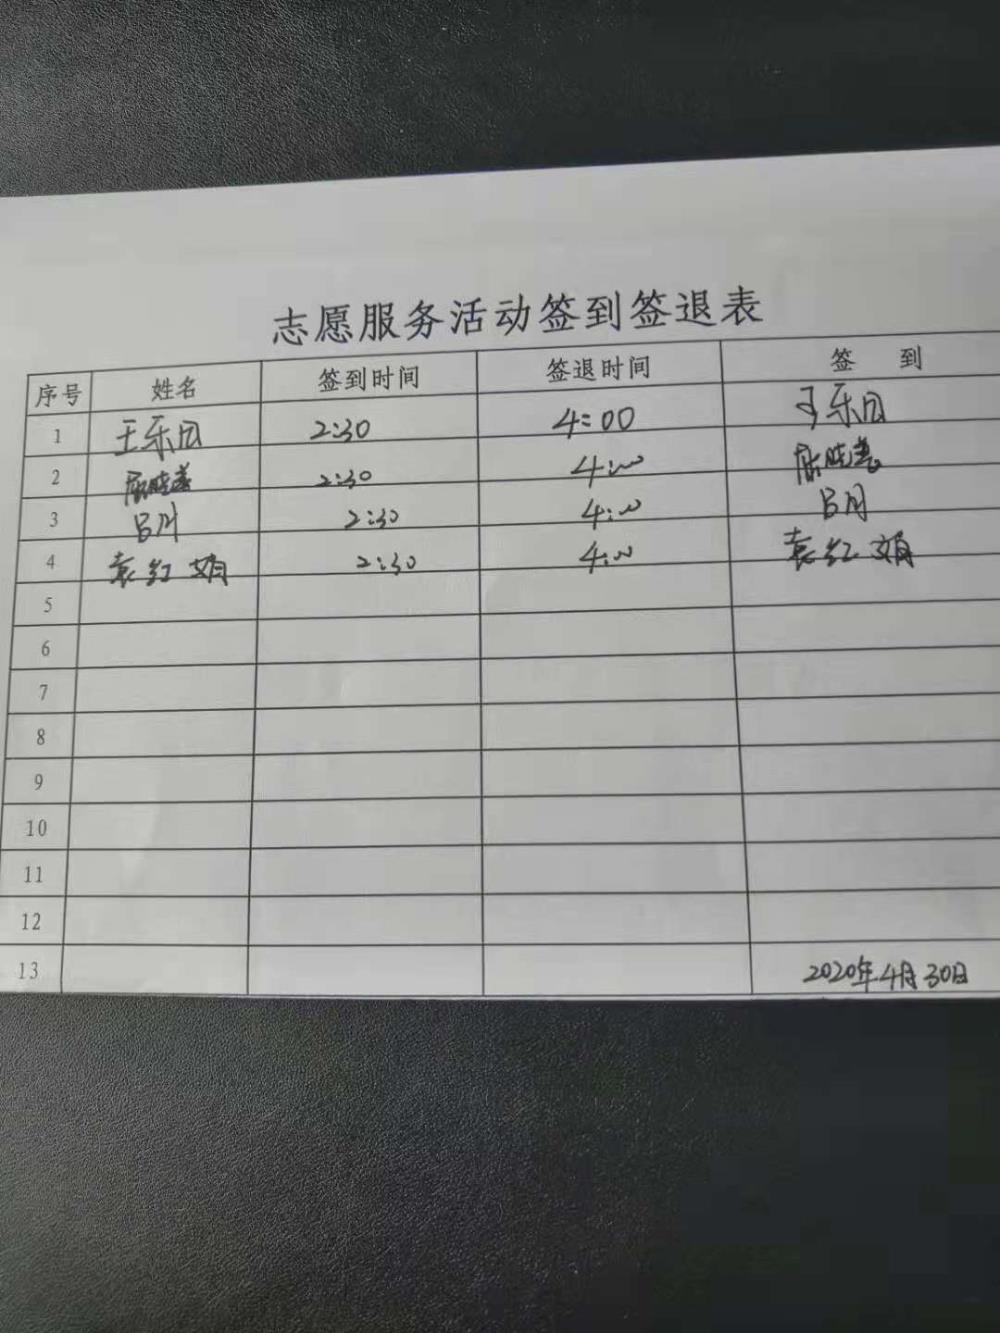 志愿服务活动签到签退表
序号 姓名 签到时间 签退时间 签 到
1 王乐团 2:30 4:00 王乐团
2 2:30 4:00
3 吕月 2:30 4:00 吕月
4 袁红娟 2:30 4:00 袁红娟
5
6
7
8
9
10
11
12
13 2020年4月30日